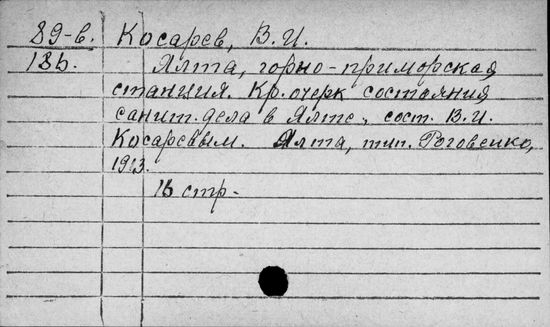 89-в. Косарев, В.И.
18б. Ялта, горно-приморская
станция. Кр. очерк состояния
санит. дела в Ялте, сост. В.И.
Косаревым. Ялта, тип. Роговенко,
1913.
16 стр.